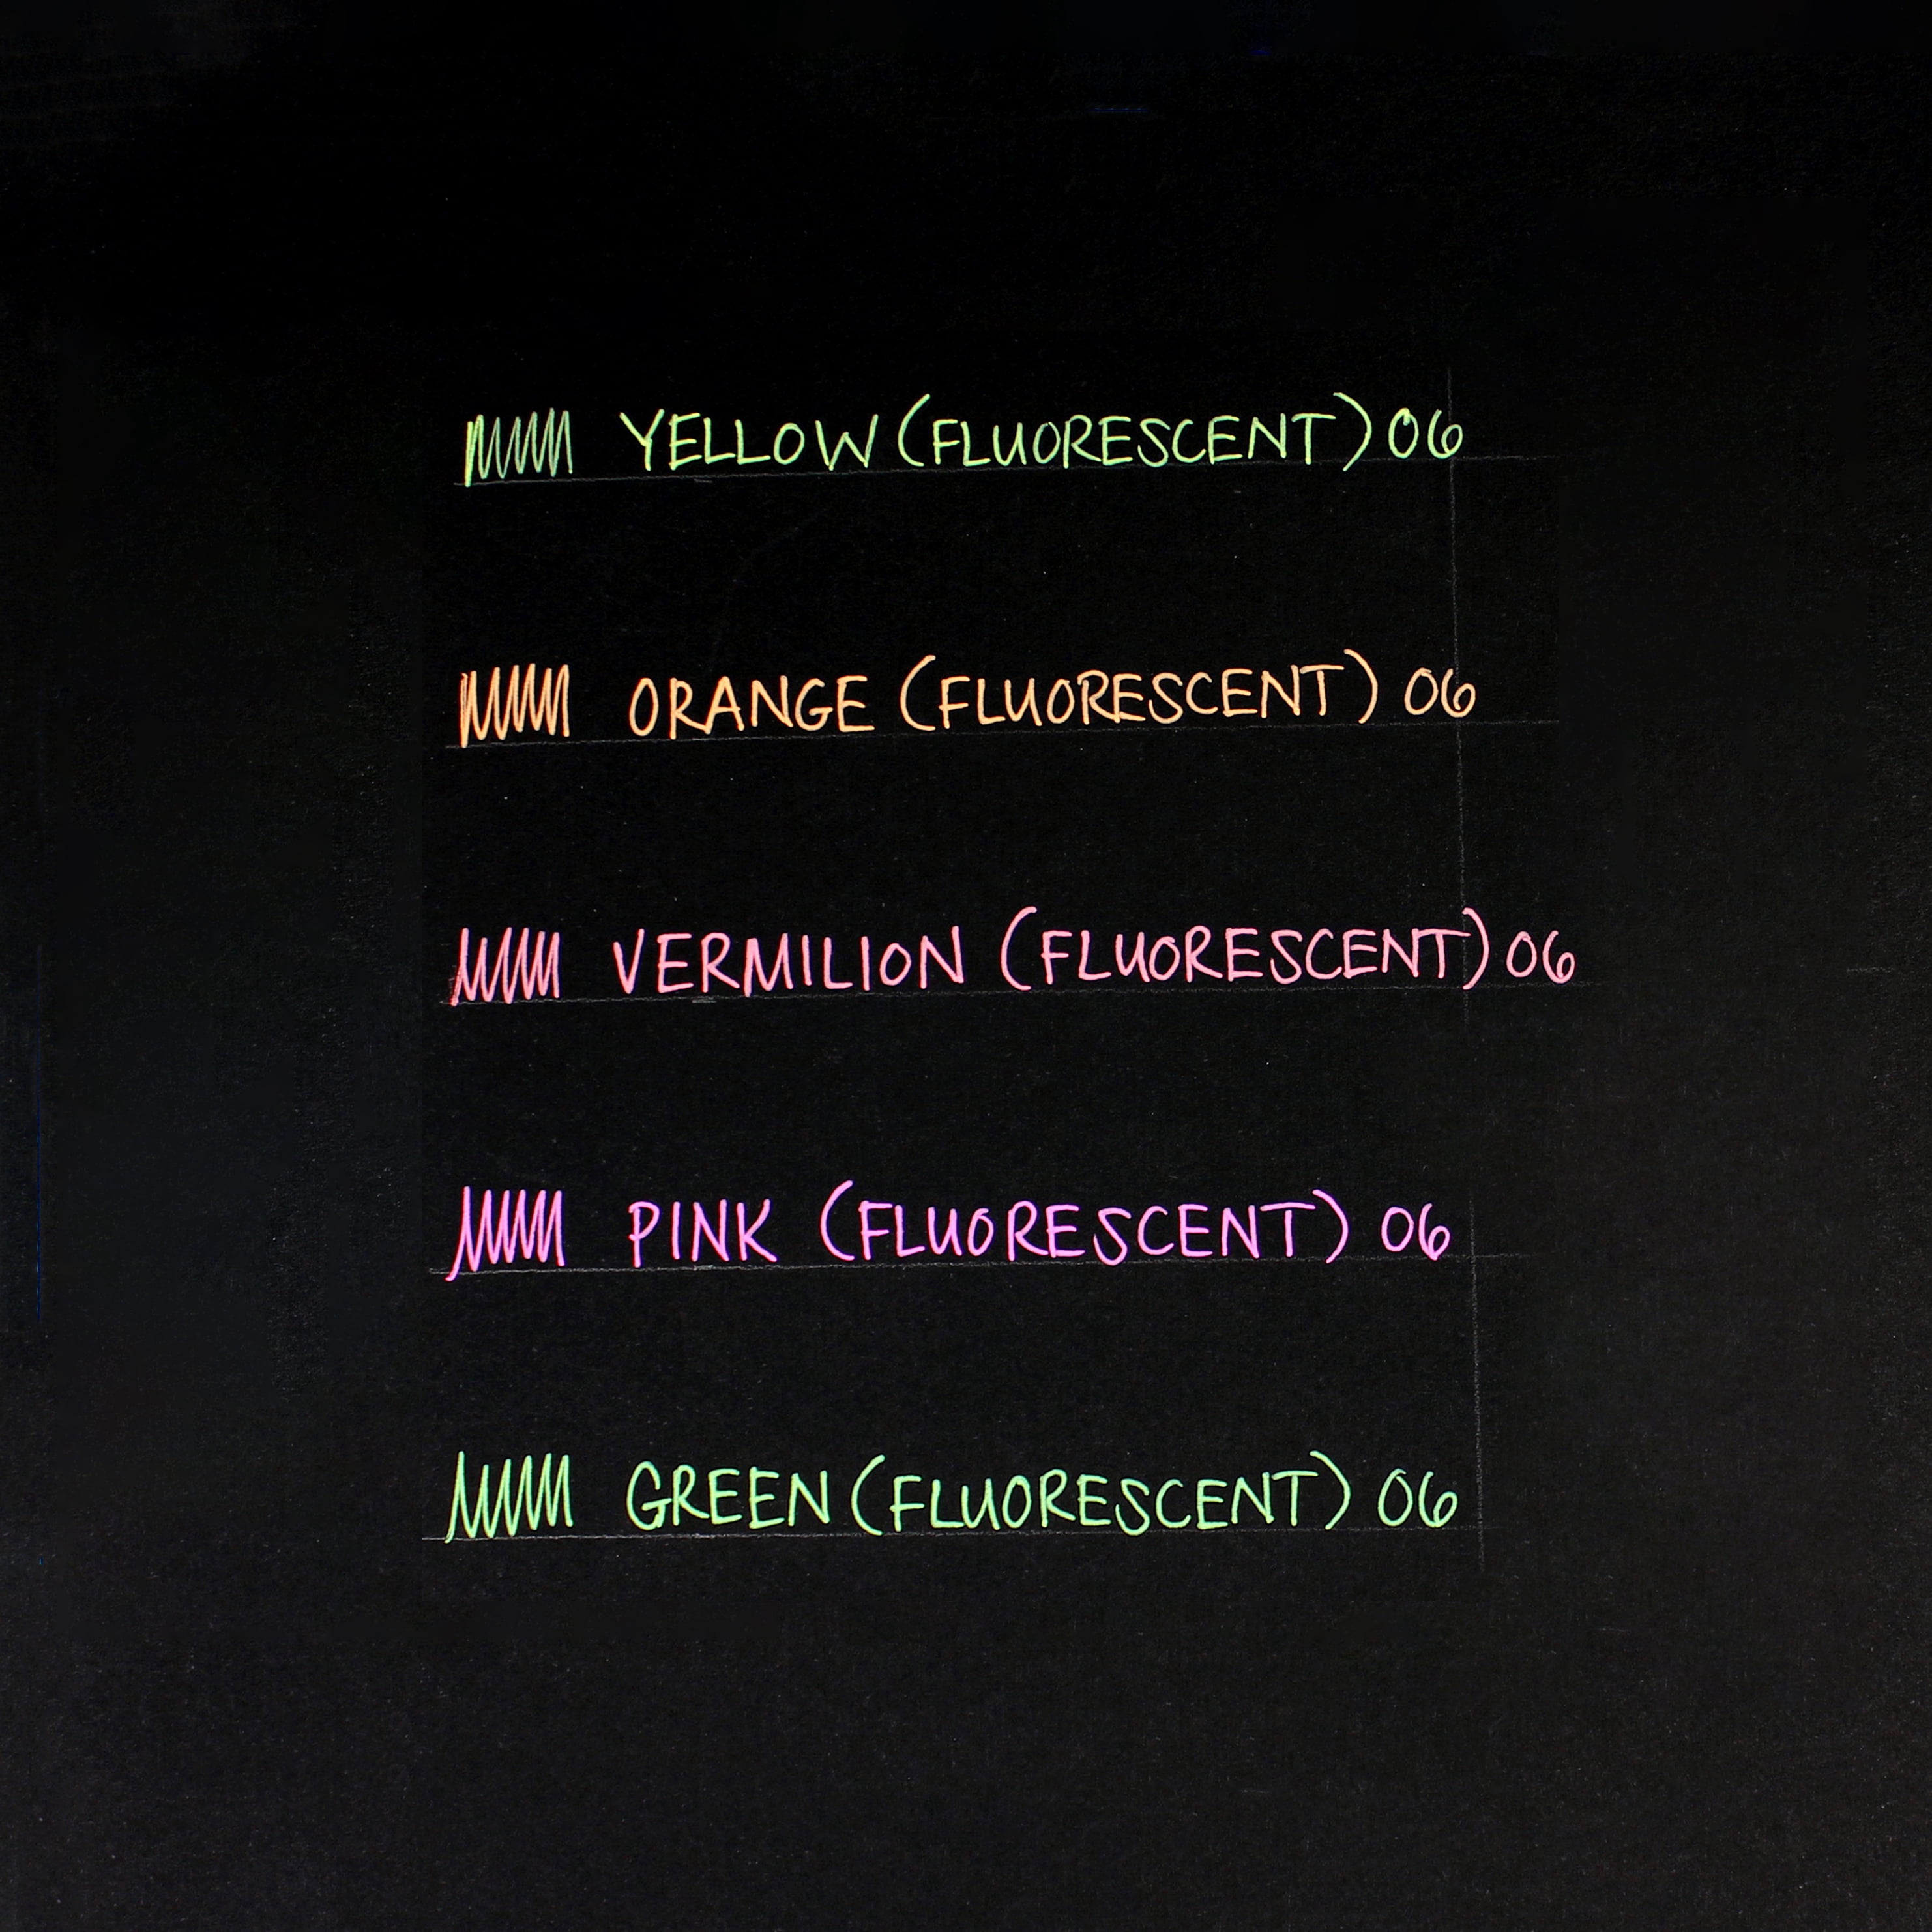 YELLOW (FLUORESCENT) 06
ORANGE (FLUORESCENT) 06
VERMILION (FLUORESCENT) 06
PINK (FLUORESCENT) 06
GREEN (FLUORESCENT) 06